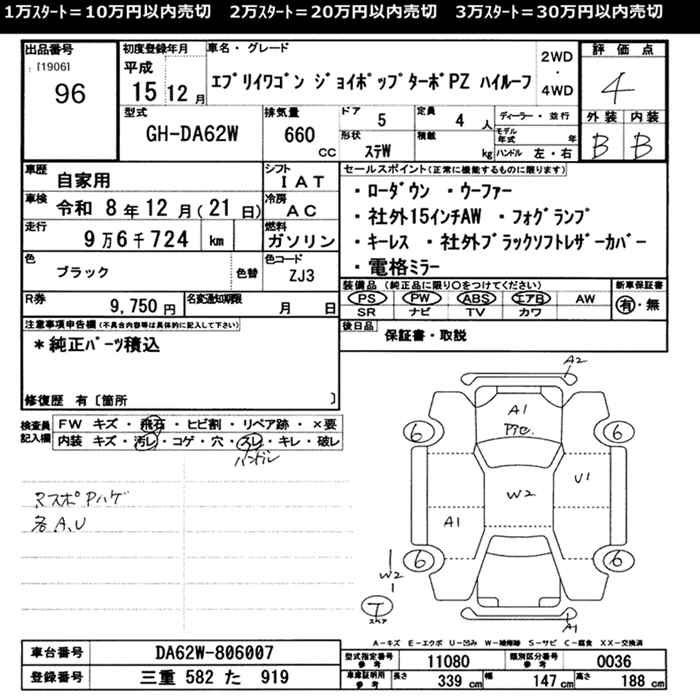 1万ｽﾀｰﾄ＝10万円以内売切　2万ｽﾀｰﾄ＝20万円以内売切　3万ｽﾀｰﾄ＝30万円以内売切
出品番号
[1906]
96
初度登録年月
平成
15 12 月
車名・グレード
ｴﾌﾞﾘｲﾜｺﾞﾝ ｼﾞｮｲﾎﾟｯﾌﾟﾀｰﾎﾞPZ ﾊｲﾙｰﾌ
2WD
・
4WD
評価点
4
外装 内装
B B
型式
GH-DA62W
排気量
660 CC
ドア
5
定員
4 人
ディーラー・並行
形状
ｽﾃW
積載
kg
モデル年式 年
ハンドル 左・右
車歴
自家用
シフト
IAT
車検
令和 8年 12月(21日)
冷房
AC
走行
9万6千724 km
燃料
ガソリン
色
ブラック
色替
色コード
ZJ3
R券
9,750 円
名変通知期限 月 日
セールスポイント(正常に機能するものに限ります)
・ﾛｰﾀﾞｳﾝ ・ｳｰﾌｧｰ
・社外15ｲﾝﾁAW ・ﾌｫｸﾞﾗﾝﾌﾟ
・ｷｰﾚｽ ・社外ﾌﾞﾗｯｸｿﾌﾄﾚｻﾞｰｶﾊﾞｰ
・電格ﾐﾗｰ
装備品(純正品に限り○をつけてください)
PS PW ABS エアB AW
SR ナビ TV カワ
新車保証書
有・無
後日品
保証書・取説
注意事項申告欄(不具合内容等は具体的に記入して下さい)
＊純正ﾊﾟｰﾂ積込
修復歴 有〔箇所 〕
検査員記入欄
FW キズ・飛石・ヒビ割・リペア跡・×要
内装 キズ・汚レ・コゲ・穴・スレ・キレ・破レ
ハンドル
RスポPハゲ
各A,U
A2
A1
Pic.
6 6
W2
U1
A1
6 6
W2
T
スペア
A1
A－キズ E－エクボ U－凹み W－補修跡 S－サビ C－腐食 XX－交換済
車台番号
DA62W-806007
登録番号
三重 582 た 919
型式指定番号 参考
11080
類別区分番号 参考
0036
車庫証明用 参考
長さ 339 cm
幅 147 cm
高さ 188 cm